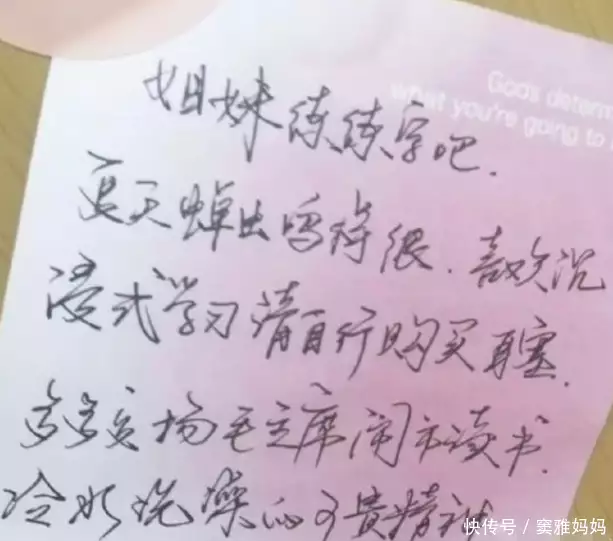 Gods determ
what you're going to
姐妹练练字吧.
夏天蝉出鸣得很.喜欢沉
浸式学习请自行购买耳塞.
多多发扬毛主席闹市读书.
冷水洗澡的可贵精神
快传号 / 窦雅妈妈